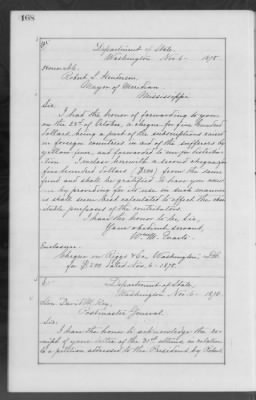 168
Department of State.
Washington Nov. 6 - 1878
Honorable
Robert L. Henderson.
Mayor of Meridian.
Mississippi
Sir.
I had the honor of forwarding to you
on the 23d of October, a cheque for five hundred
dollars, being a part of the subscriptions raised
in foreign countries in aid of the sufferers by
yellow fever, and forwarded to me for distribu-
tion. I enclose herewith a second cheque for
five hundred dollars ($500) from the same
fund and shall be gratified to have you
in by providing for its use in such manner
as shall seem best calculated to effect the char-
itable purposes of the contributors.
I have the honor to be, Sir,
Your obedient servant,
Wm. M. Evarts.
Enclosure.
Cheque on Riggs & Co. Washington,
for $500 dated Nov. 6 - 1878.
Department of State,
Washington Nov. 6 - 1878
Hon. David M. Key,
Postmaster General.
Sir.
I have the honor to acknowledge the re-
ceipt of your letter of the 31st ultimo in relation
to a petition addressed to the President by